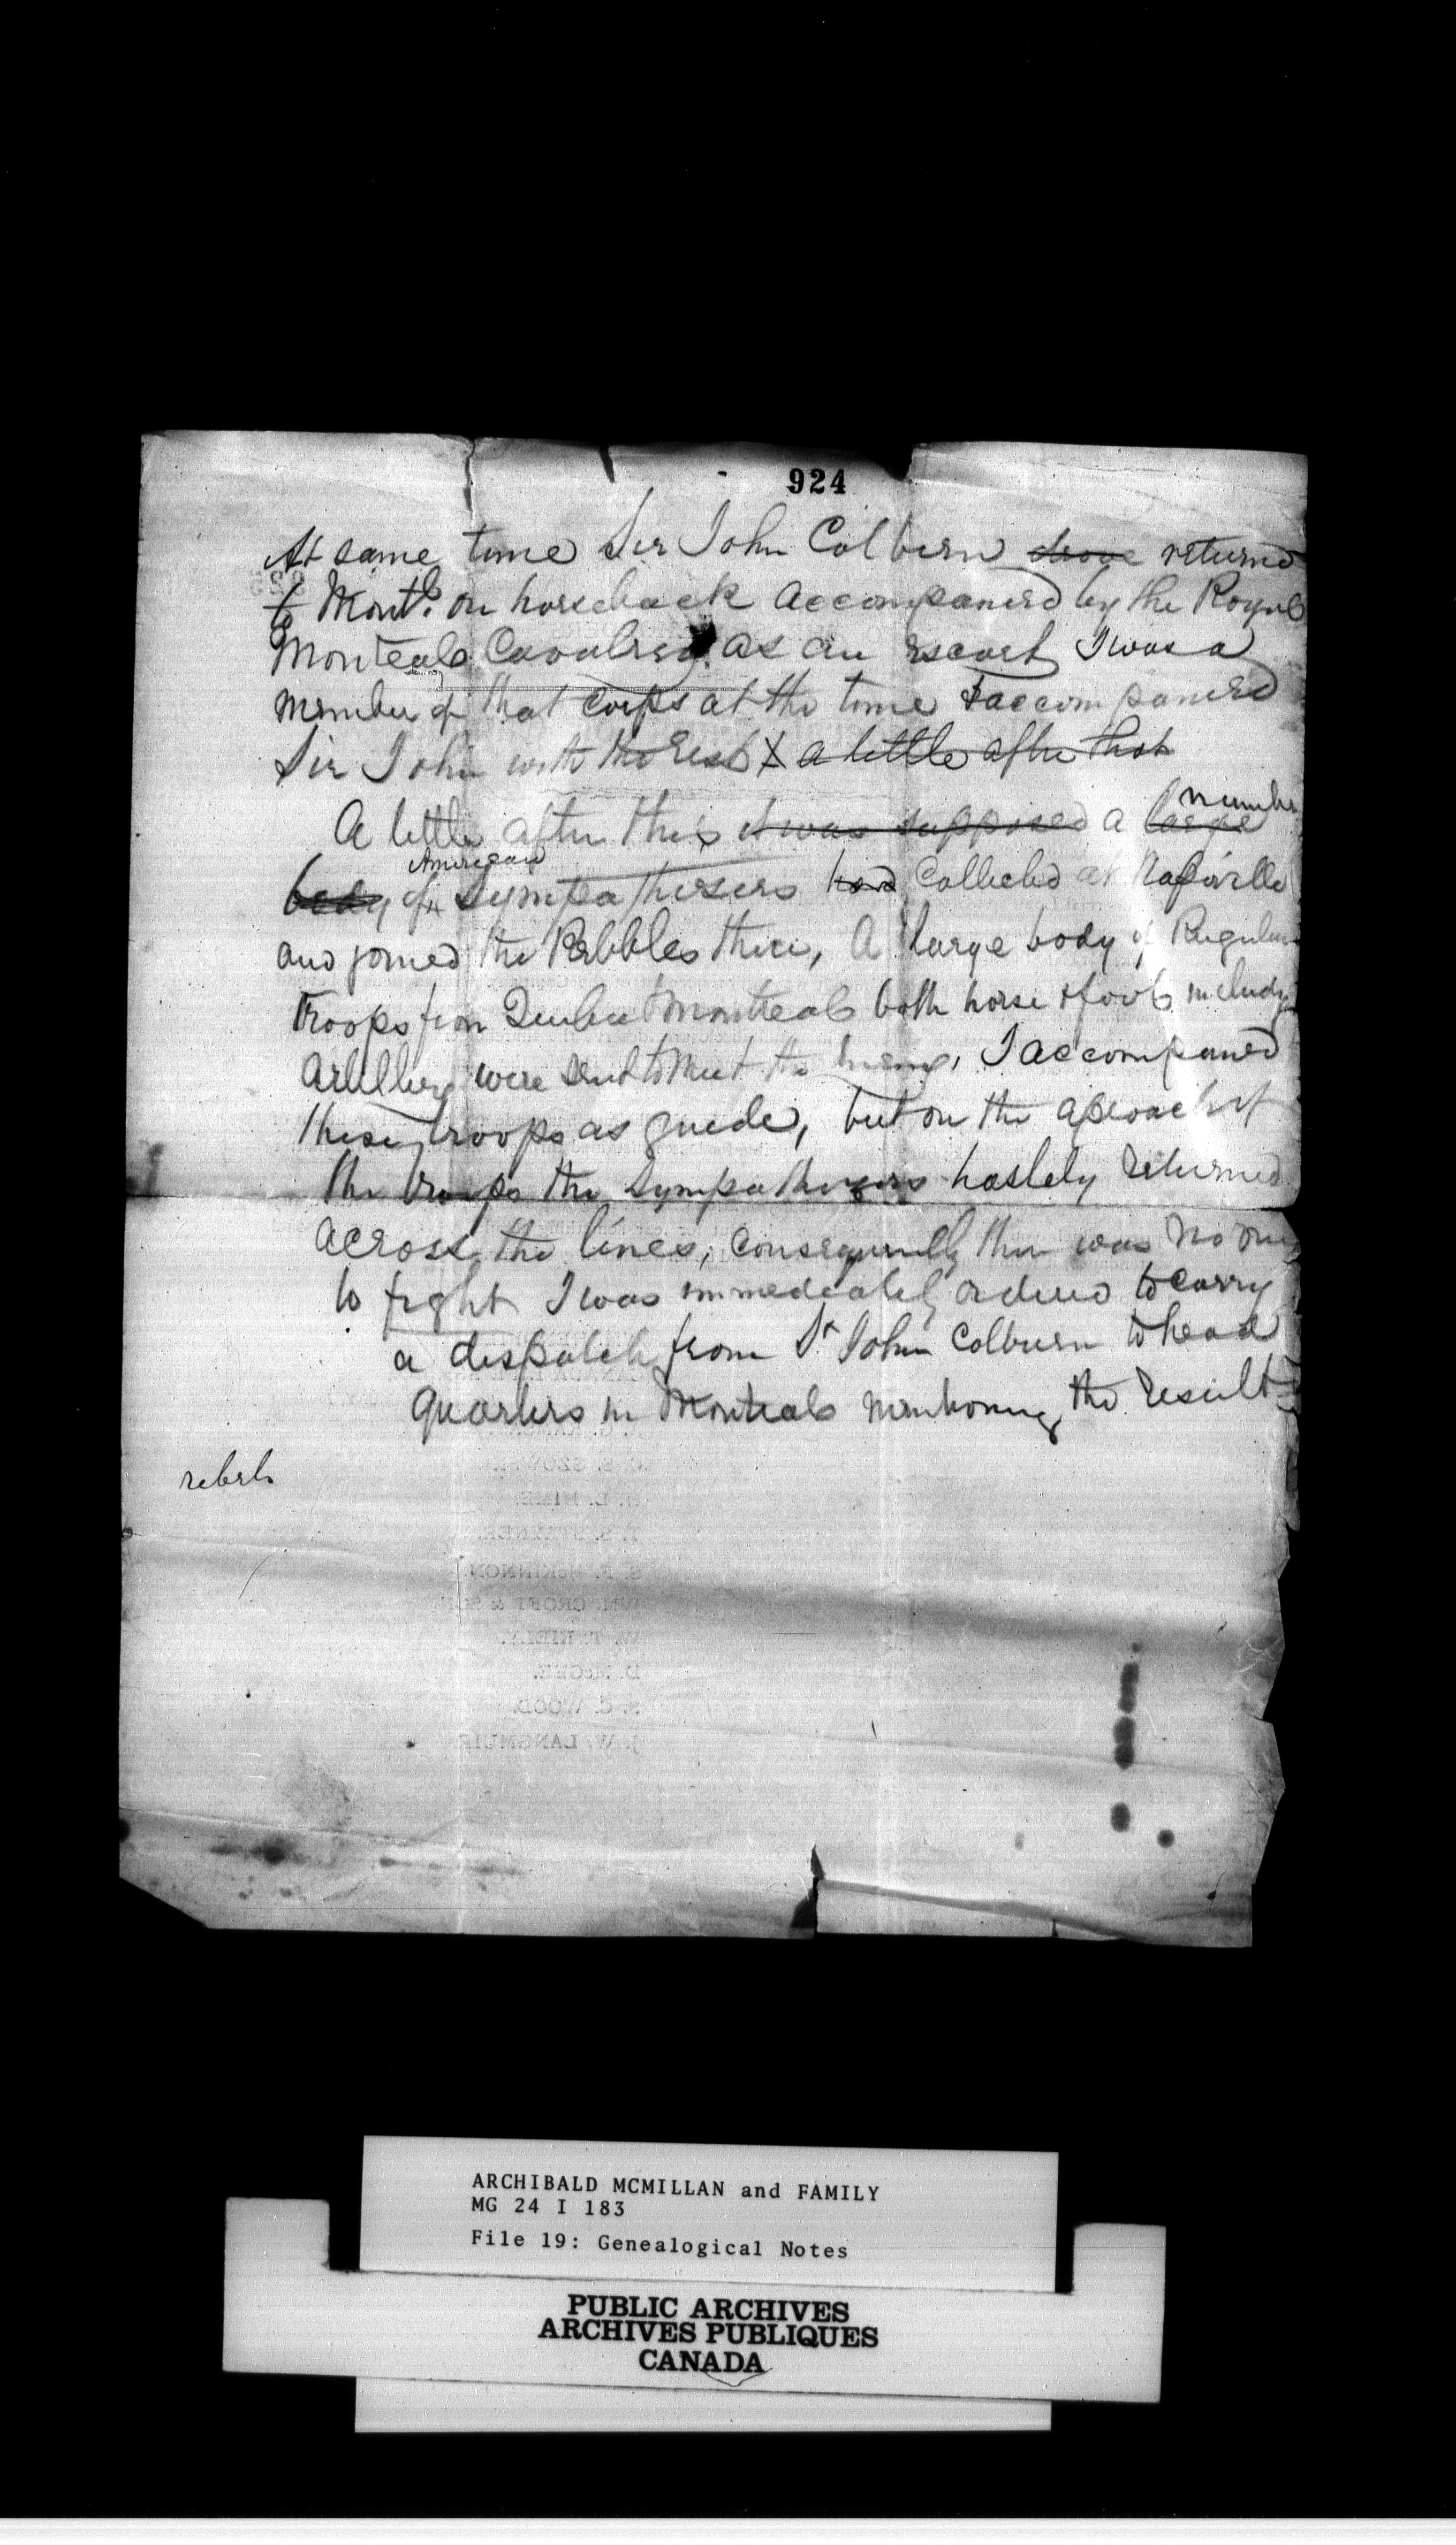 924
At same time Sir John Colbern drove returned
to Montl. on horseback accompanied by the Royal
Montreal Cavalrey as an escort I was a
member of that corps at the time & accompanied
Sir John with the rest & a little after that
A little after this it was supposed a large number
body of American Sympathisers had Collected at Napierville
and joined the Rebbles there, A large body of Regular
Troops from Quebec & Montreal both horse & foot includg
Artillery were send to meet the Enemy, I accompanied
these troops as guide, but on the aproach of
the troops the Sympathizers hastely returned
across the lines, consequently there was no one
to fight I was immediately ordered to carry
a dispatch from Sr John Colburn to head
quarters in Montreal mentioning the result
rebels
A. G. RAMSAY.
T. S. STAYNER.
S. F. MCKINNON.
WM. CROFT & SON.
D. McGEE.
S. C. WOOD.
J. W. LANGMUIR
ARCHIBALD MCMILLAN and FAMILY
MG 24 I 183
File 19: Genealogical Notes
PUBLIC ARCHIVES
ARCHIVES PUBLIQUES
CANADA